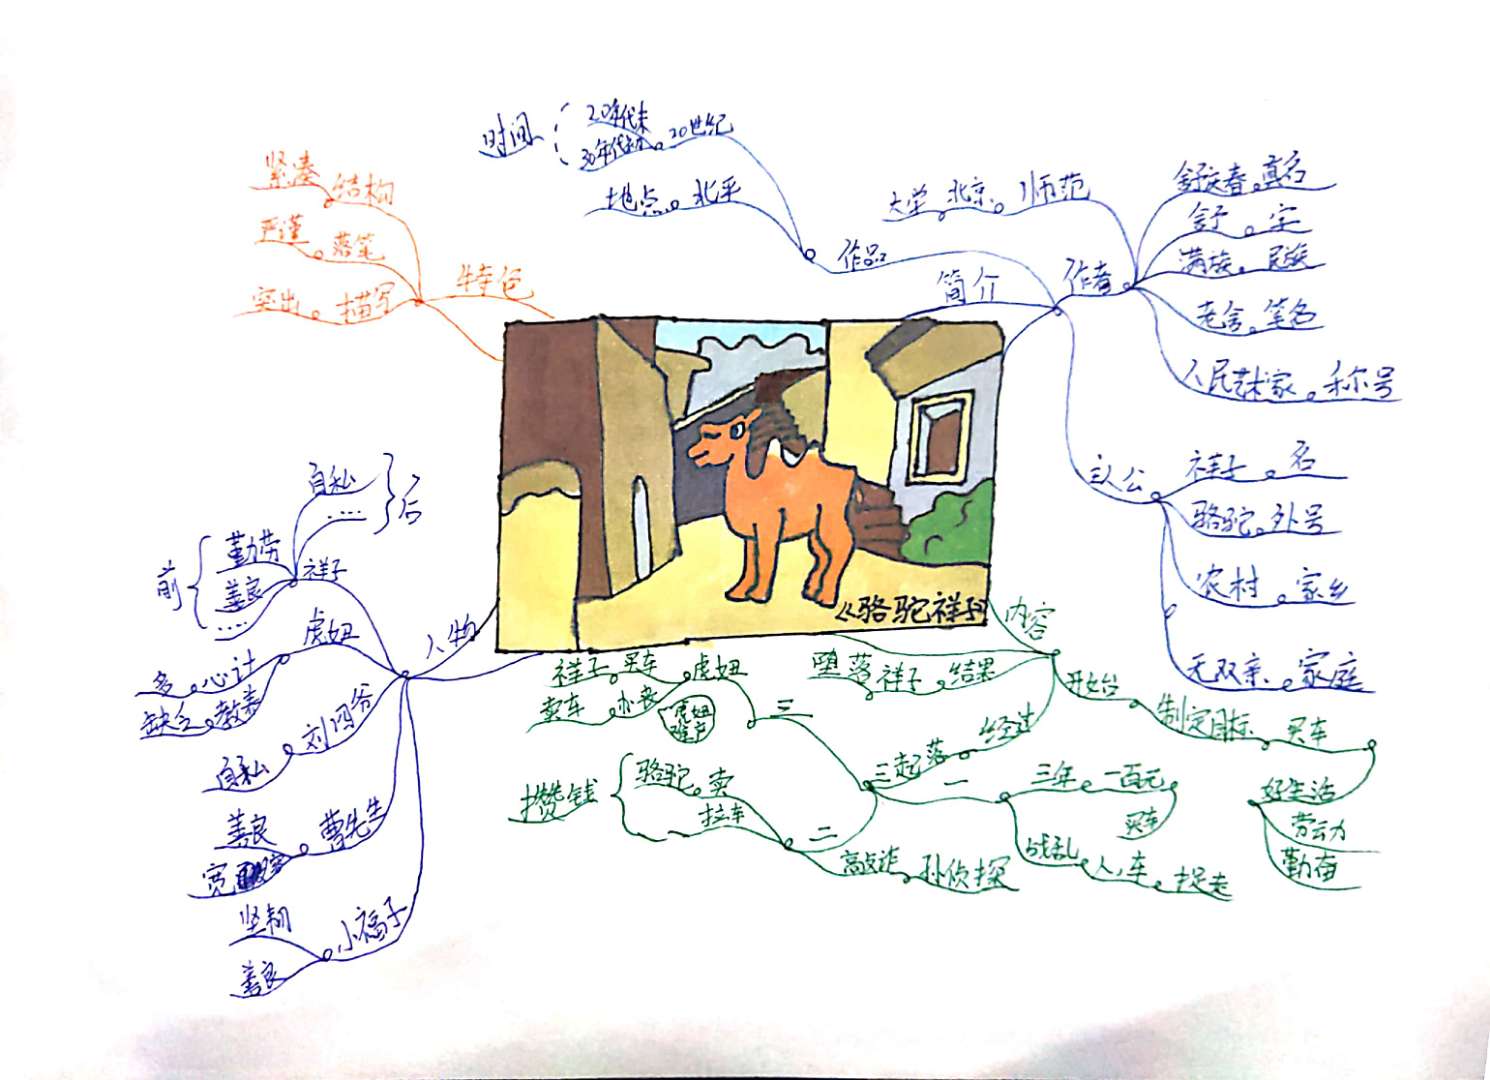 时间
20年代末
30年代初
20世纪
地点 北平
作品
简介
作者
大学 北京 师范
舒庆春 真名
舒 字
满族 民族
老舍 笔名
人民艺术家 称号
主人公
祥子 名
骆驼 外号
农村 家乡
无双亲 家庭
特色
紧凑 结构
严谨 落笔
突出 描写
《骆驼祥子》
人物
祥子
前
勤劳
善良
……
自私
……
后
虎妞
多 心计
缺乏 教养
刘四爷
自私
曹先生
善良
宽
小福子
坚韧
善良
内容
开始
制定目标 买车
好生活
劳动
勤奋
经过
三起落
一
三年 一百元
买车
战乱 人,车 捉走
二
攒钱
骆驼 卖
拉车
高敲诈 孙侦探
三
祥子 买车 虎妞
卖车 办丧
虎妞
难产
堕落 祥子 结果